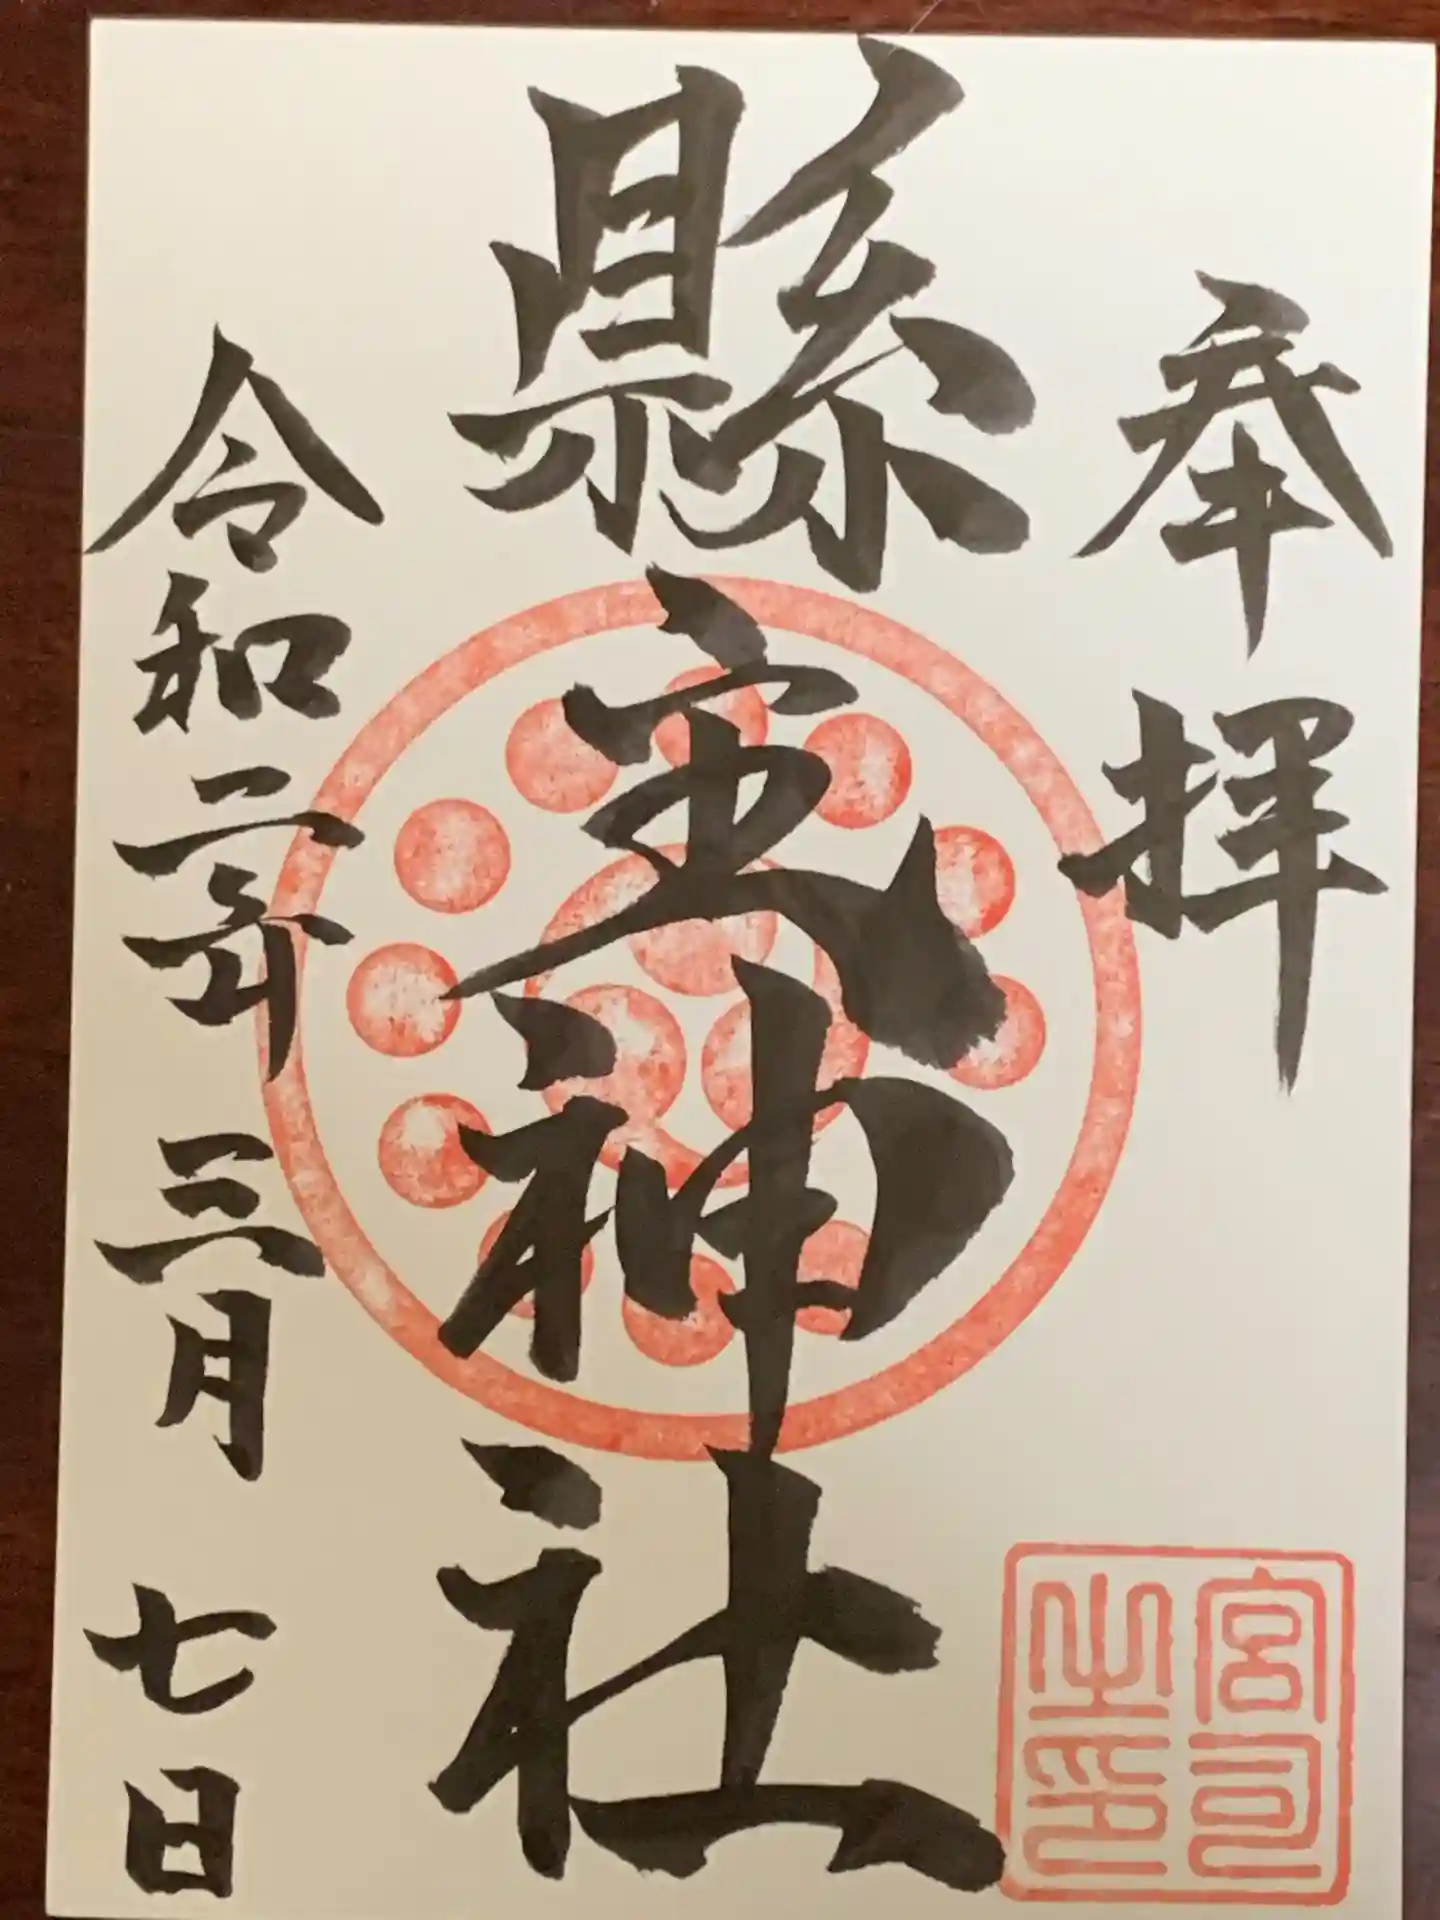 奉拝
縣主神社
令和二年三月七日
宮司
之印